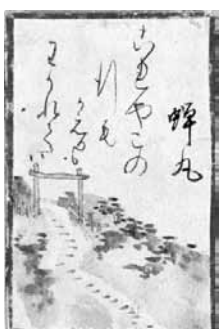 蝉丸
これやこの
行も
かへるも
わかれてハ